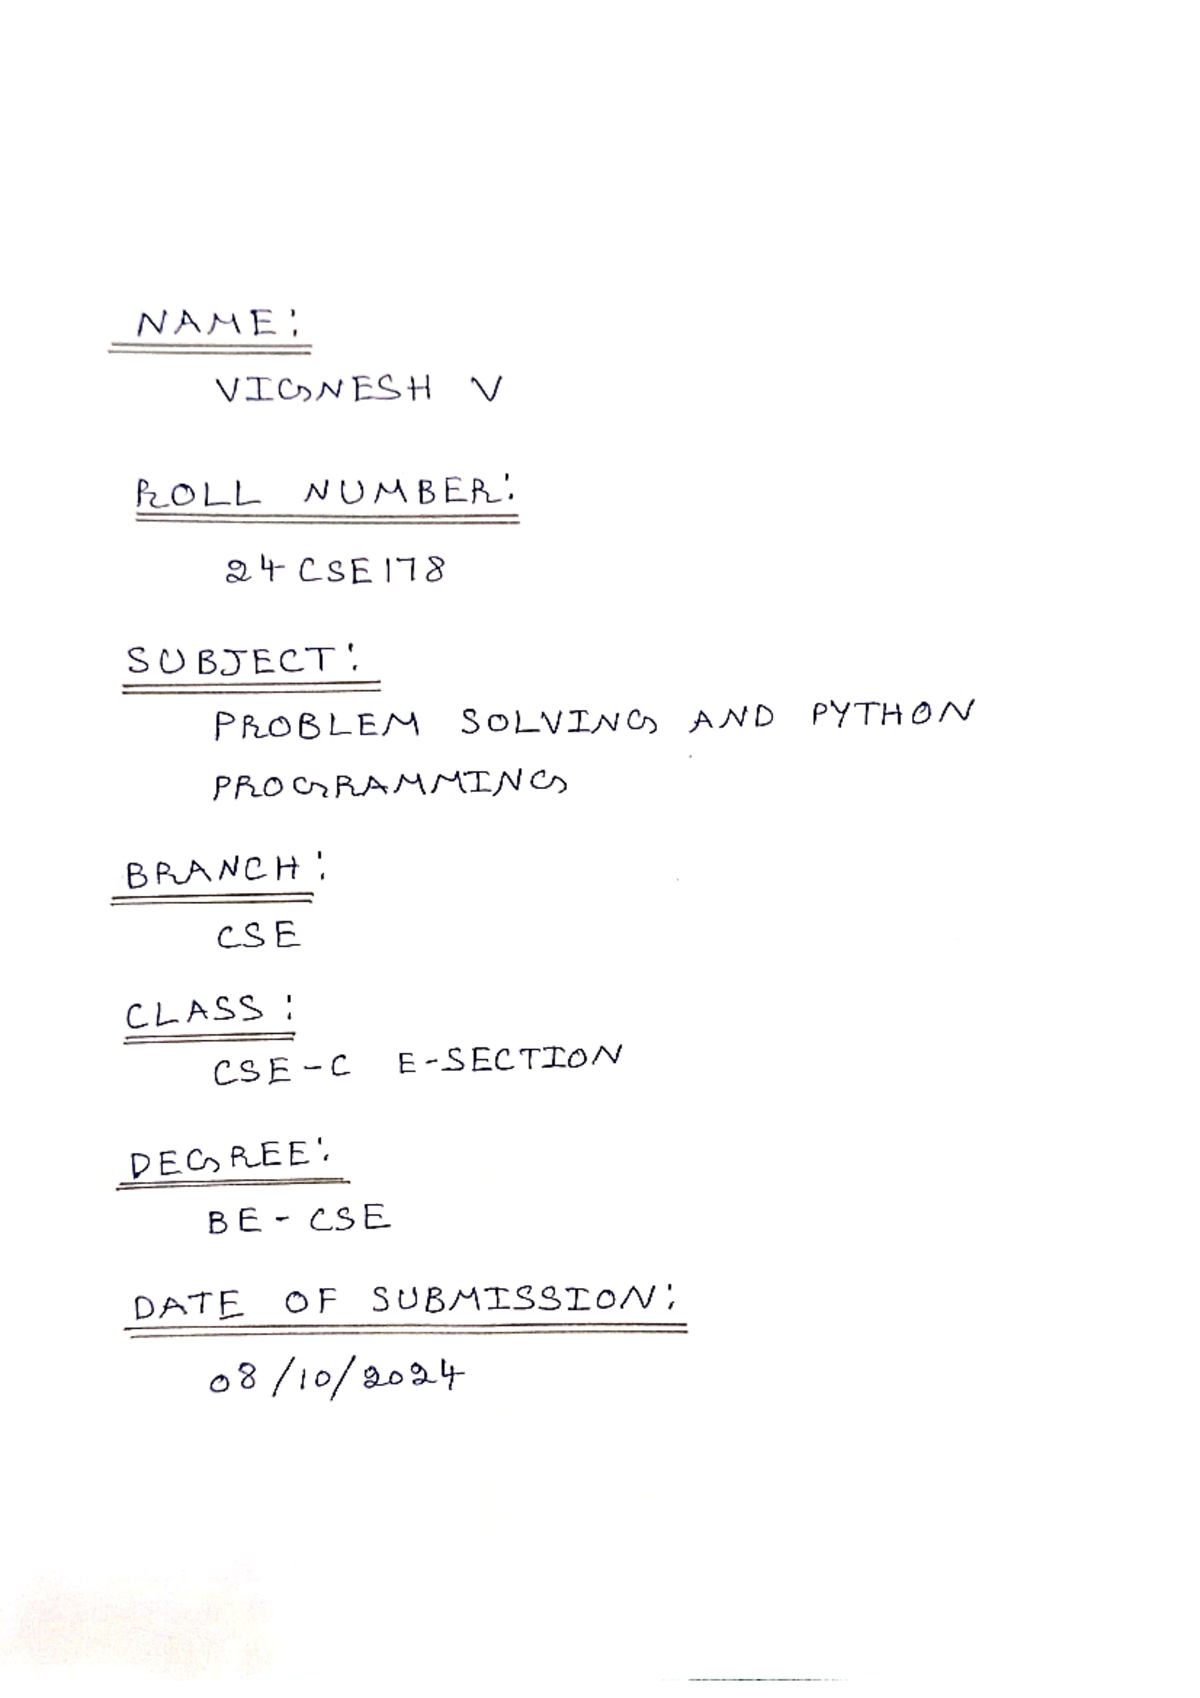 NAME:
VIGNESH V
ROLL NUMBER:
24CSE178
SUBJECT:
PROBLEM SOLVING AND PYTHON
PROGRAMMING
BRANCH:
CSE
CLASS:
CSE-C E-SECTION
DEGREE:
BE-CSE
DATE OF SUBMISSION:
08/10/2024